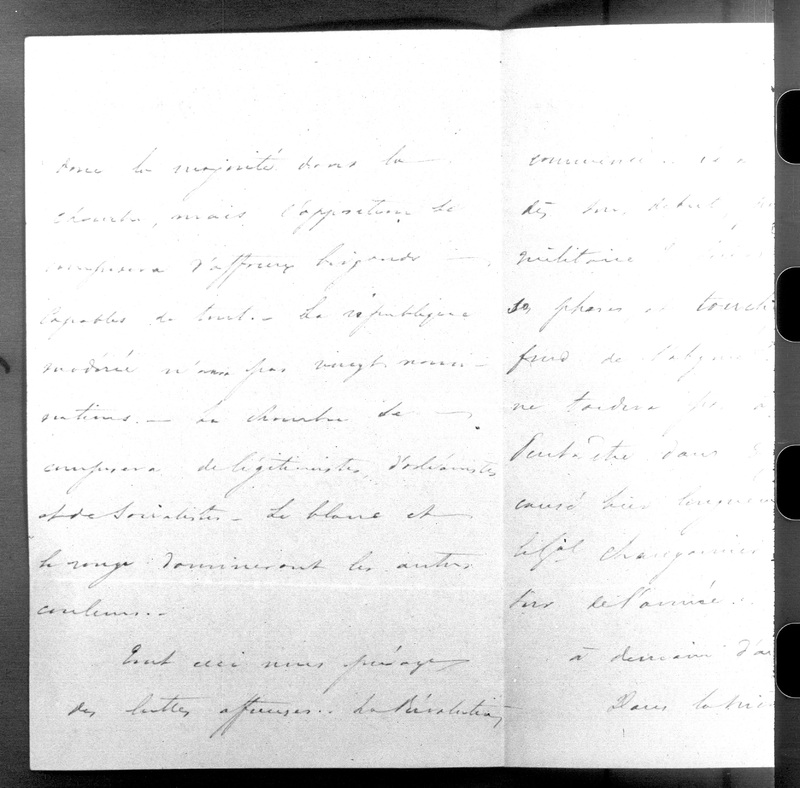 donc la majorité dans la
chambre, mais l'opposition se
composera d'affreux brigands —
capables de tout. — La république
modérée n'aura pas vingt nomi-
nations. — La chambre se —
composera de légitimistes d'orléanistes
et de Socialistes — Le blanc et
le rouge domineront les autres
couleurs. —
Tout ceci nous présage
des luttes affreuses.. La Révolution
commencé
dès son début
militaire
ses phases et
fond de l'abyme
ne tardera pas
Peut être dans
causé hier
le Gal Changarnier
sur de l'armée..
à demain
Dans la